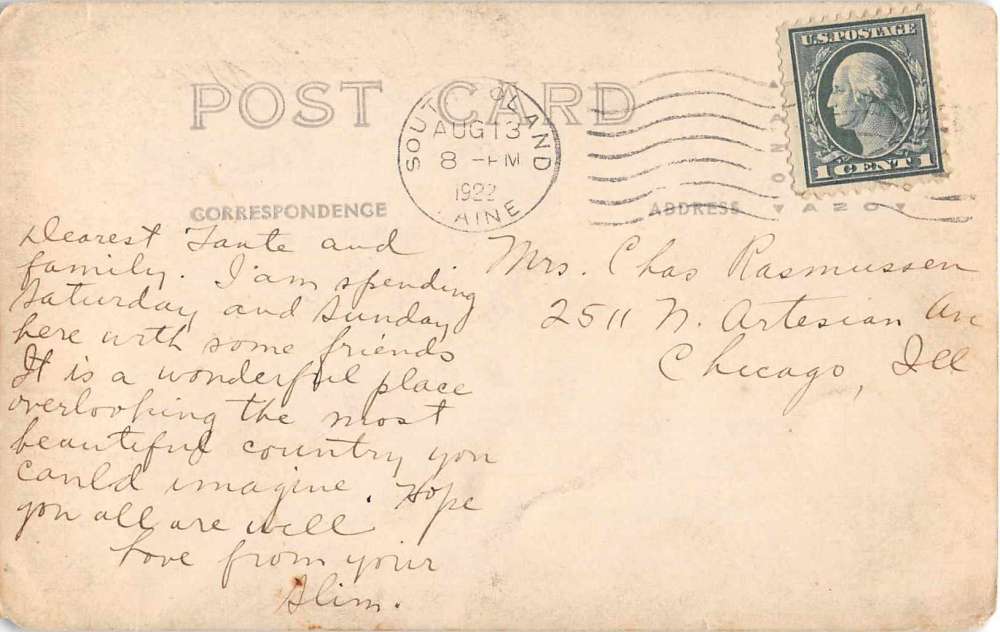 U.S. POSTAGE
1 CENT 1
POST CARD
SOUT OLAND
AUG 13
8 - PM
1922
AINE
CORRESPONDENCE
ADDRESS
Dearest Tante and
family. I am spending
Saturday and Sunday
here with some friends
It is a wonderful place
overlooking the most
beautiful country you
could imagine. Hope
you all are well
Love from your
Slim.
Mrs. Chas Rasmussen
2511 N. Artesian Ave
Chicago, Ill